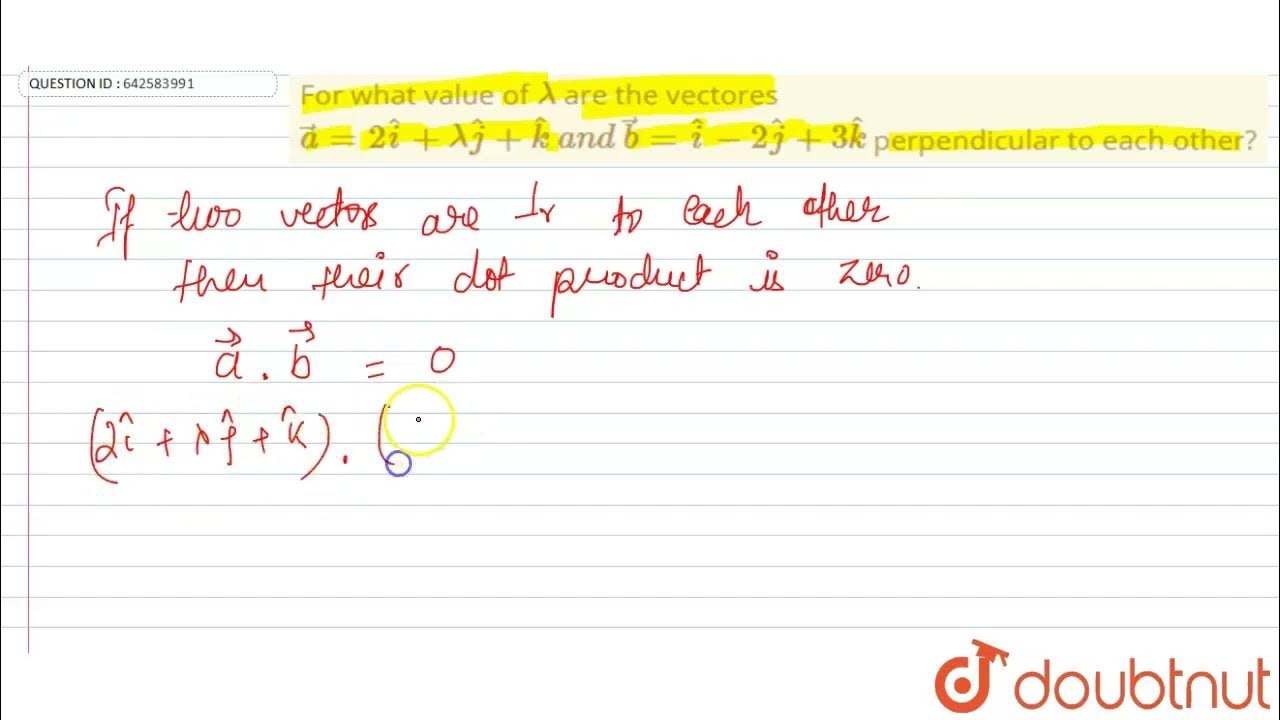 QUESTION ID : 642583991
For what value of λ are the vectores
$\vec{a} = 2\hat{i} + \lambda\hat{j} + \hat{k}$ and $\vec{b} = \hat{i} - 2\hat{j} + 3\hat{k}$ perpendicular to each other?
If two vectors are ⊥r to each other
then their dot product is zero.
$\vec{a} . \vec{b} = 0$
$(2\hat{i} + \lambda\hat{j} + \hat{k}) . ($
doubtnut